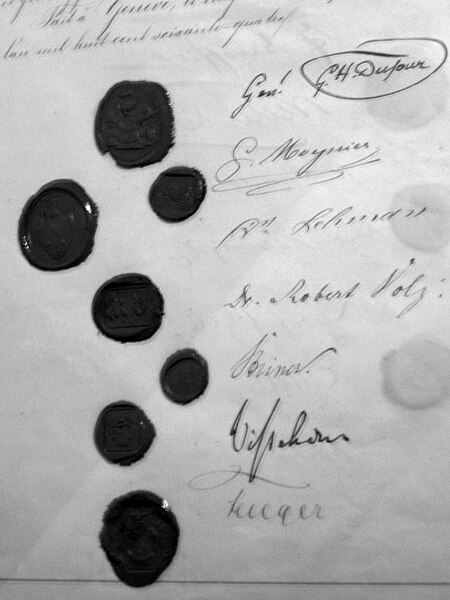 Fait à Genève, le
l'an mil huit cent soixante-quatre.
Genl G. H. Dufour
G. Moynier
Bn Lehmann
Dr. Robert Volz.
Steiner
Visschers